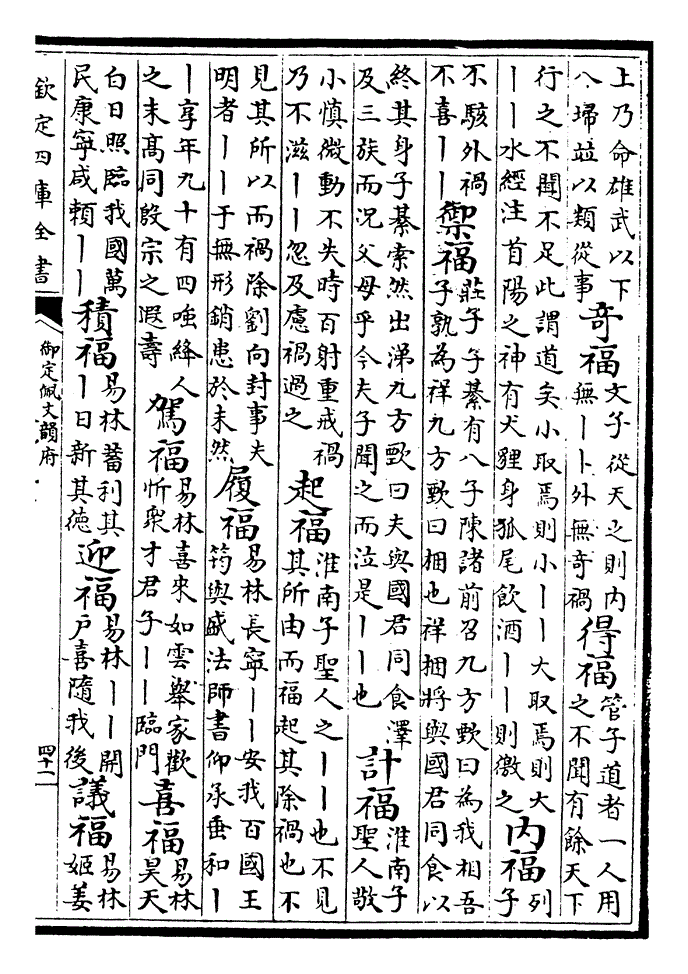 上乃命雄武以下
八埽並以類從事
奇福
文子從天之則内
無丨卜外無奇禍
得福
管子道者一人用
之不聞有餘天下
行之不聞不足此謂道矣小取焉則小丨丨大取焉則大
丨丨水經注首陽之神有犬貍身狐尾飲酒丨丨則徼之
内福
列
子
不駭外禍
不喜丨丨
禦福
莊子子綦有八子陳諸前召九方歅曰為我相吾
子孰為祥九方歅曰梱也祥梱將與國君同食以
終其身子綦索然出涕九方歅曰夫與國君同食澤
及三族而況父母乎今夫子聞之而泣是丨丨也
計福
淮南子
聖人敬
小慎微動不失時百射重戒禍
乃不滋丨丨忽及慮禍過之
起福
淮南子聖人之丨丨也不見
其所由而福起其除禍也不
見其所以而禍除劉向封事夫
明者丨丨于無形銷患於未然
履福
易林長寧丨丨安我百國王
筠與盛法師書仰承垂和丨
丨享年九十有四唯絳人
之末髙同殷宗之遐壽
駕福
易林喜來如雲舉家歡
忻衆才君子丨丨臨門
喜福
易林
昊天
白日照臨我國萬
民康寧咸頼丨丨
積福
易林蓄利其
丨日新其德
迎福
易林丨丨開
户喜隨我後
議福
易林
姬姜
欽定四庫全書
御定佩文韻府
四十二